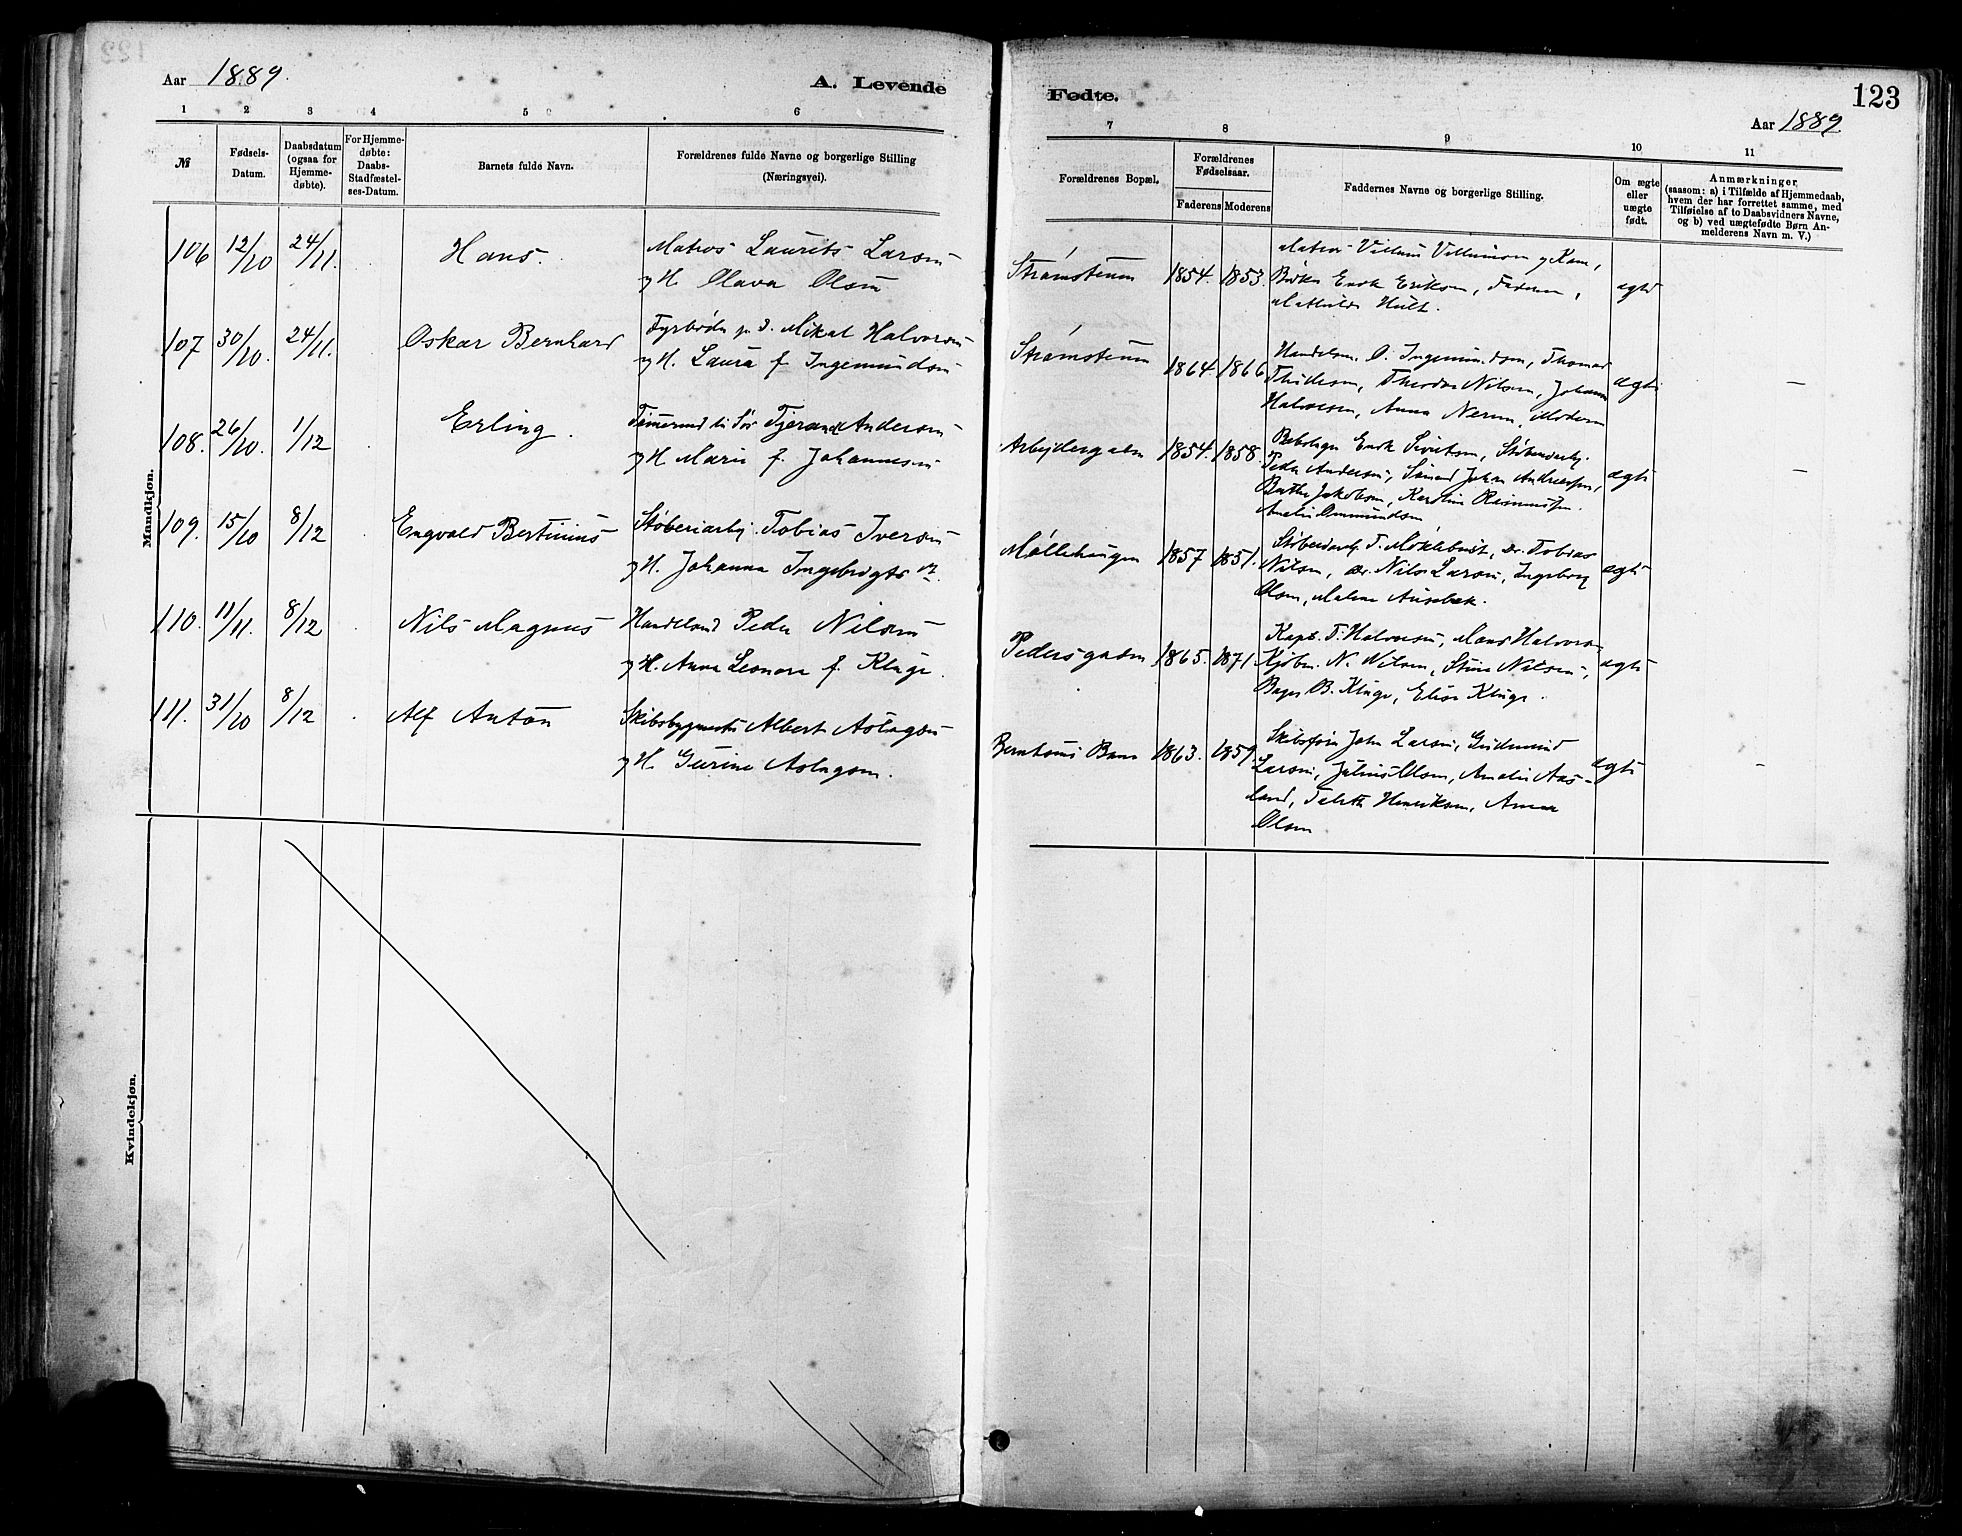 Aar 1889.
A. Levende
Fødte.
123
Aar 1889
1 2 3 4 5 6
7 8 9 10 11
№
Fødsels-Datum.
Daabsdatum (ogsaa for Hjemmedøbte).
For Hjemmedøbte: Daabs-Stadfæstelses-Datum.
Barnets fulde Navn.
Forældrenes fulde Navne og borgerlige Stilling
(Næringsvei).
Forældrenes Bopæl.
Forældrenes Fødselsaar.
Faderens Moderens
Faddernes Navne og borgerlige Stilling.
Om ægte eller uægte født.
Anmærkninger
(saasom: a) i Tilfælde af Hjemmedaab,
hvem der har forrettet samme, med
Tilføielse af to Daabsvidners Navne,
og b) ved uægtefødte Børn An-
melderens Navn m. V.)
Mandkjøn.
106 12/10 24/11. Hans. Matros Laurits Larsen
og H. Olava Olsen
Strømsteen 1854. 1853.
Erik Eriksen, Faderen,
Mathilde Hult.
ægte
107 30/10. 24/11. Oskar Bernhard Mikal Halvorsen
og H. Laura f. Ingemundsen
Strømsteen 1864. 1866
Handelsm. O. Ingemundsen, Thomas
Theodor Nilsen, Johan
Halvorsen, Anna Moderen
ægte –
108. 26/10. 1/12 Erling. Andersen
og H Marie f. Johannesen
Arbeidergaden 1854. 1858.
Peder Andersen, Johan Andreassen,
Berthe Jakobsen, Karoline Rasmussen.
Ommundsen
ægte –
109. 15/10 8/12 Engvald Bertinius Støberiarbj. Tobias Iversen
og H. Johanna Ingebrigts
Møllehaugen 1857 1851.
Støberiarbj. T. Møklebust, do. Tobias
Nilsen, do. Nils Larsen, Ingeborg
Olsen, Malene
ægte
110. 11/11. 8/12 Nils Magnus Handelsmd Peder Nilsen
og H. Anna Leonora f. Kluge.
Pedersgaden 1865. 1871.
Kapt. T. Halvorsen,
Kjøbm. N. Nilsen, Stina Nilsen,
Bager B. Kluge, Elise Kluge.
ægte –
111. 31/10 8/12 Alf Anton Skibsbygmester Albert Aslagsen
og H. Gurine Aslagsen.
1863. 1859.
Skibsfører John Larsen, Gudmund
Larsen, Julius Olsen, Amalie Aas-
land, Henriksen, Anna
Olsen
ægte –
Kvindekjøn.